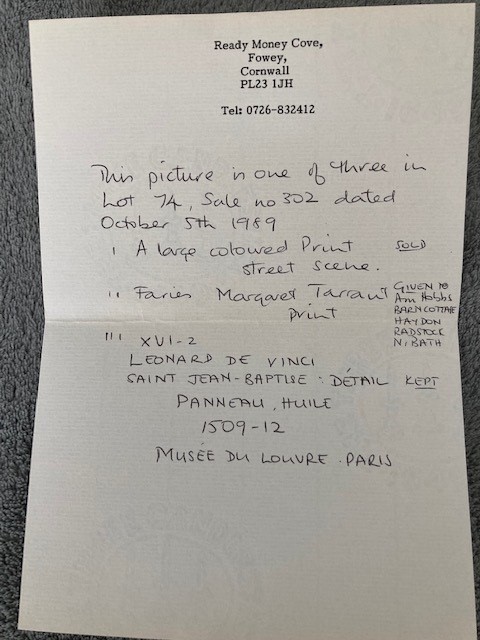 Ready Money Cove,
Fowey,
Cornwall
PL23 1JH
Tel: 0726-832412
This picture is one of three in
Lot 74, Sale no 302 dated
October 5th 1989
I A large coloured Print SOLD
street scene.
II Faries Margaret Tarrant
Print
GIVEN to
Ann Hobbs
BARN COTTAGE
HAYDON
RADSTOCK
N, BATH
III XVI-2
LEONARD DE VINCI
SAINT JEAN-BAPTISE : DÉTAIL KEPT
PANNEAU, HUILE
1509-12
MUSÉE DU LOUVRE . PARIS